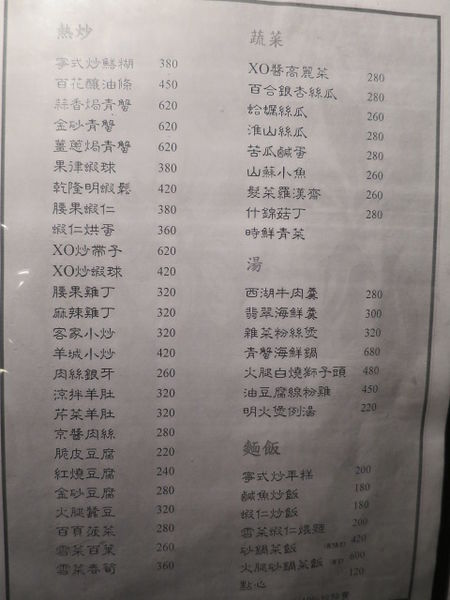 熱炒
寧式炒鱔糊 380
百花釀油條 450
蒜香焗青蟹 620
金砂青蟹 620
薑蔥焗青蟹 620
果律蝦球 380
乾隆明蝦鬆 420
腰果蝦仁 380
蝦仁烘蛋 360
XO炒帶子 620
XO炒蝦球 420
腰果雞丁 320
麻辣雞丁 320
客家小炒 320
羊城小炒 420
肉絲銀牙 260
涼拌羊肚 320
芹菜羊肚 320
京醬肉絲 280
脆皮豆腐 220
紅燒豆腐 240
金砂豆腐 280
火腿蠶豆 320
百頁菠菜 280
雪菜百葉 260
雪菜春筍 360
蔬菜
XO醬高麗菜 280
百合銀杏絲瓜 280
蛤蠣絲瓜 260
淮山絲瓜 280
苦瓜鹹蛋 280
山蘇小魚 260
髮菜羅漢齋 260
什錦菇丁 280
時鮮青菜
湯
西湖牛肉羹 280
翡翠海鮮羹 300
雜菜粉絲煲 320
青蟹海鮮鍋 680
火腿白燒獅子頭 480
油豆腐線粉雞 450
明火煲例湯 220
麵飯
寧式炒年糕 200
鹹魚炒飯 180
蝦仁炒飯 180
雪菜蝦仁煨麵 200
砂鍋菜飯 420
火腿砂鍋菜飯 600
點心 120